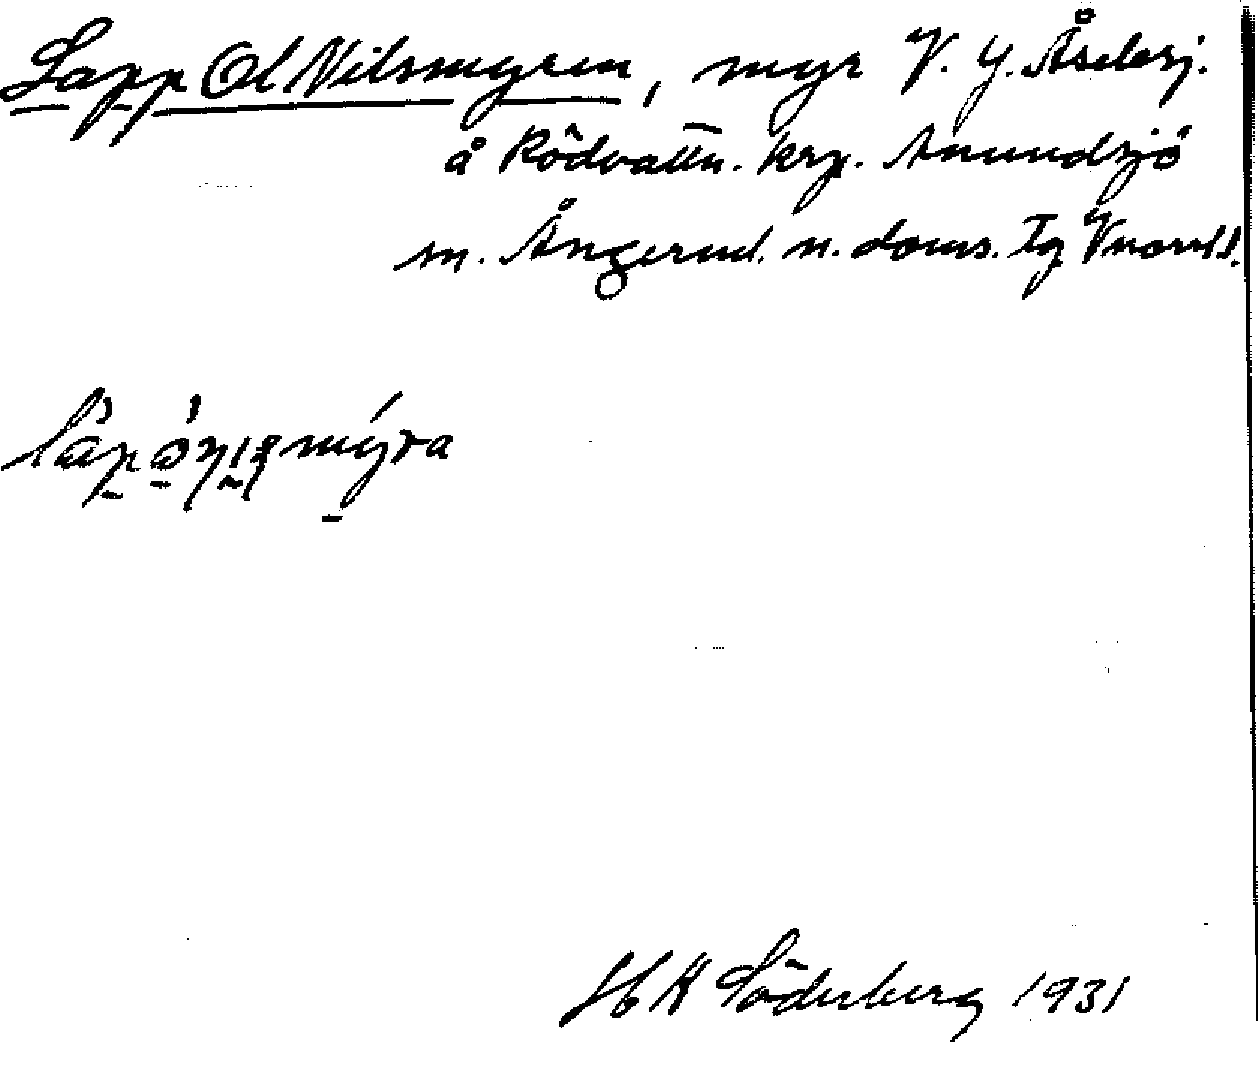 Lapp Ol Nilsmyren, myr V. Y. Åselesj.
å Rödvattn. krp. Anundsjö
m. Ångerml. n. doms. Tg Vnorrl l.
H K Söderberg 1931